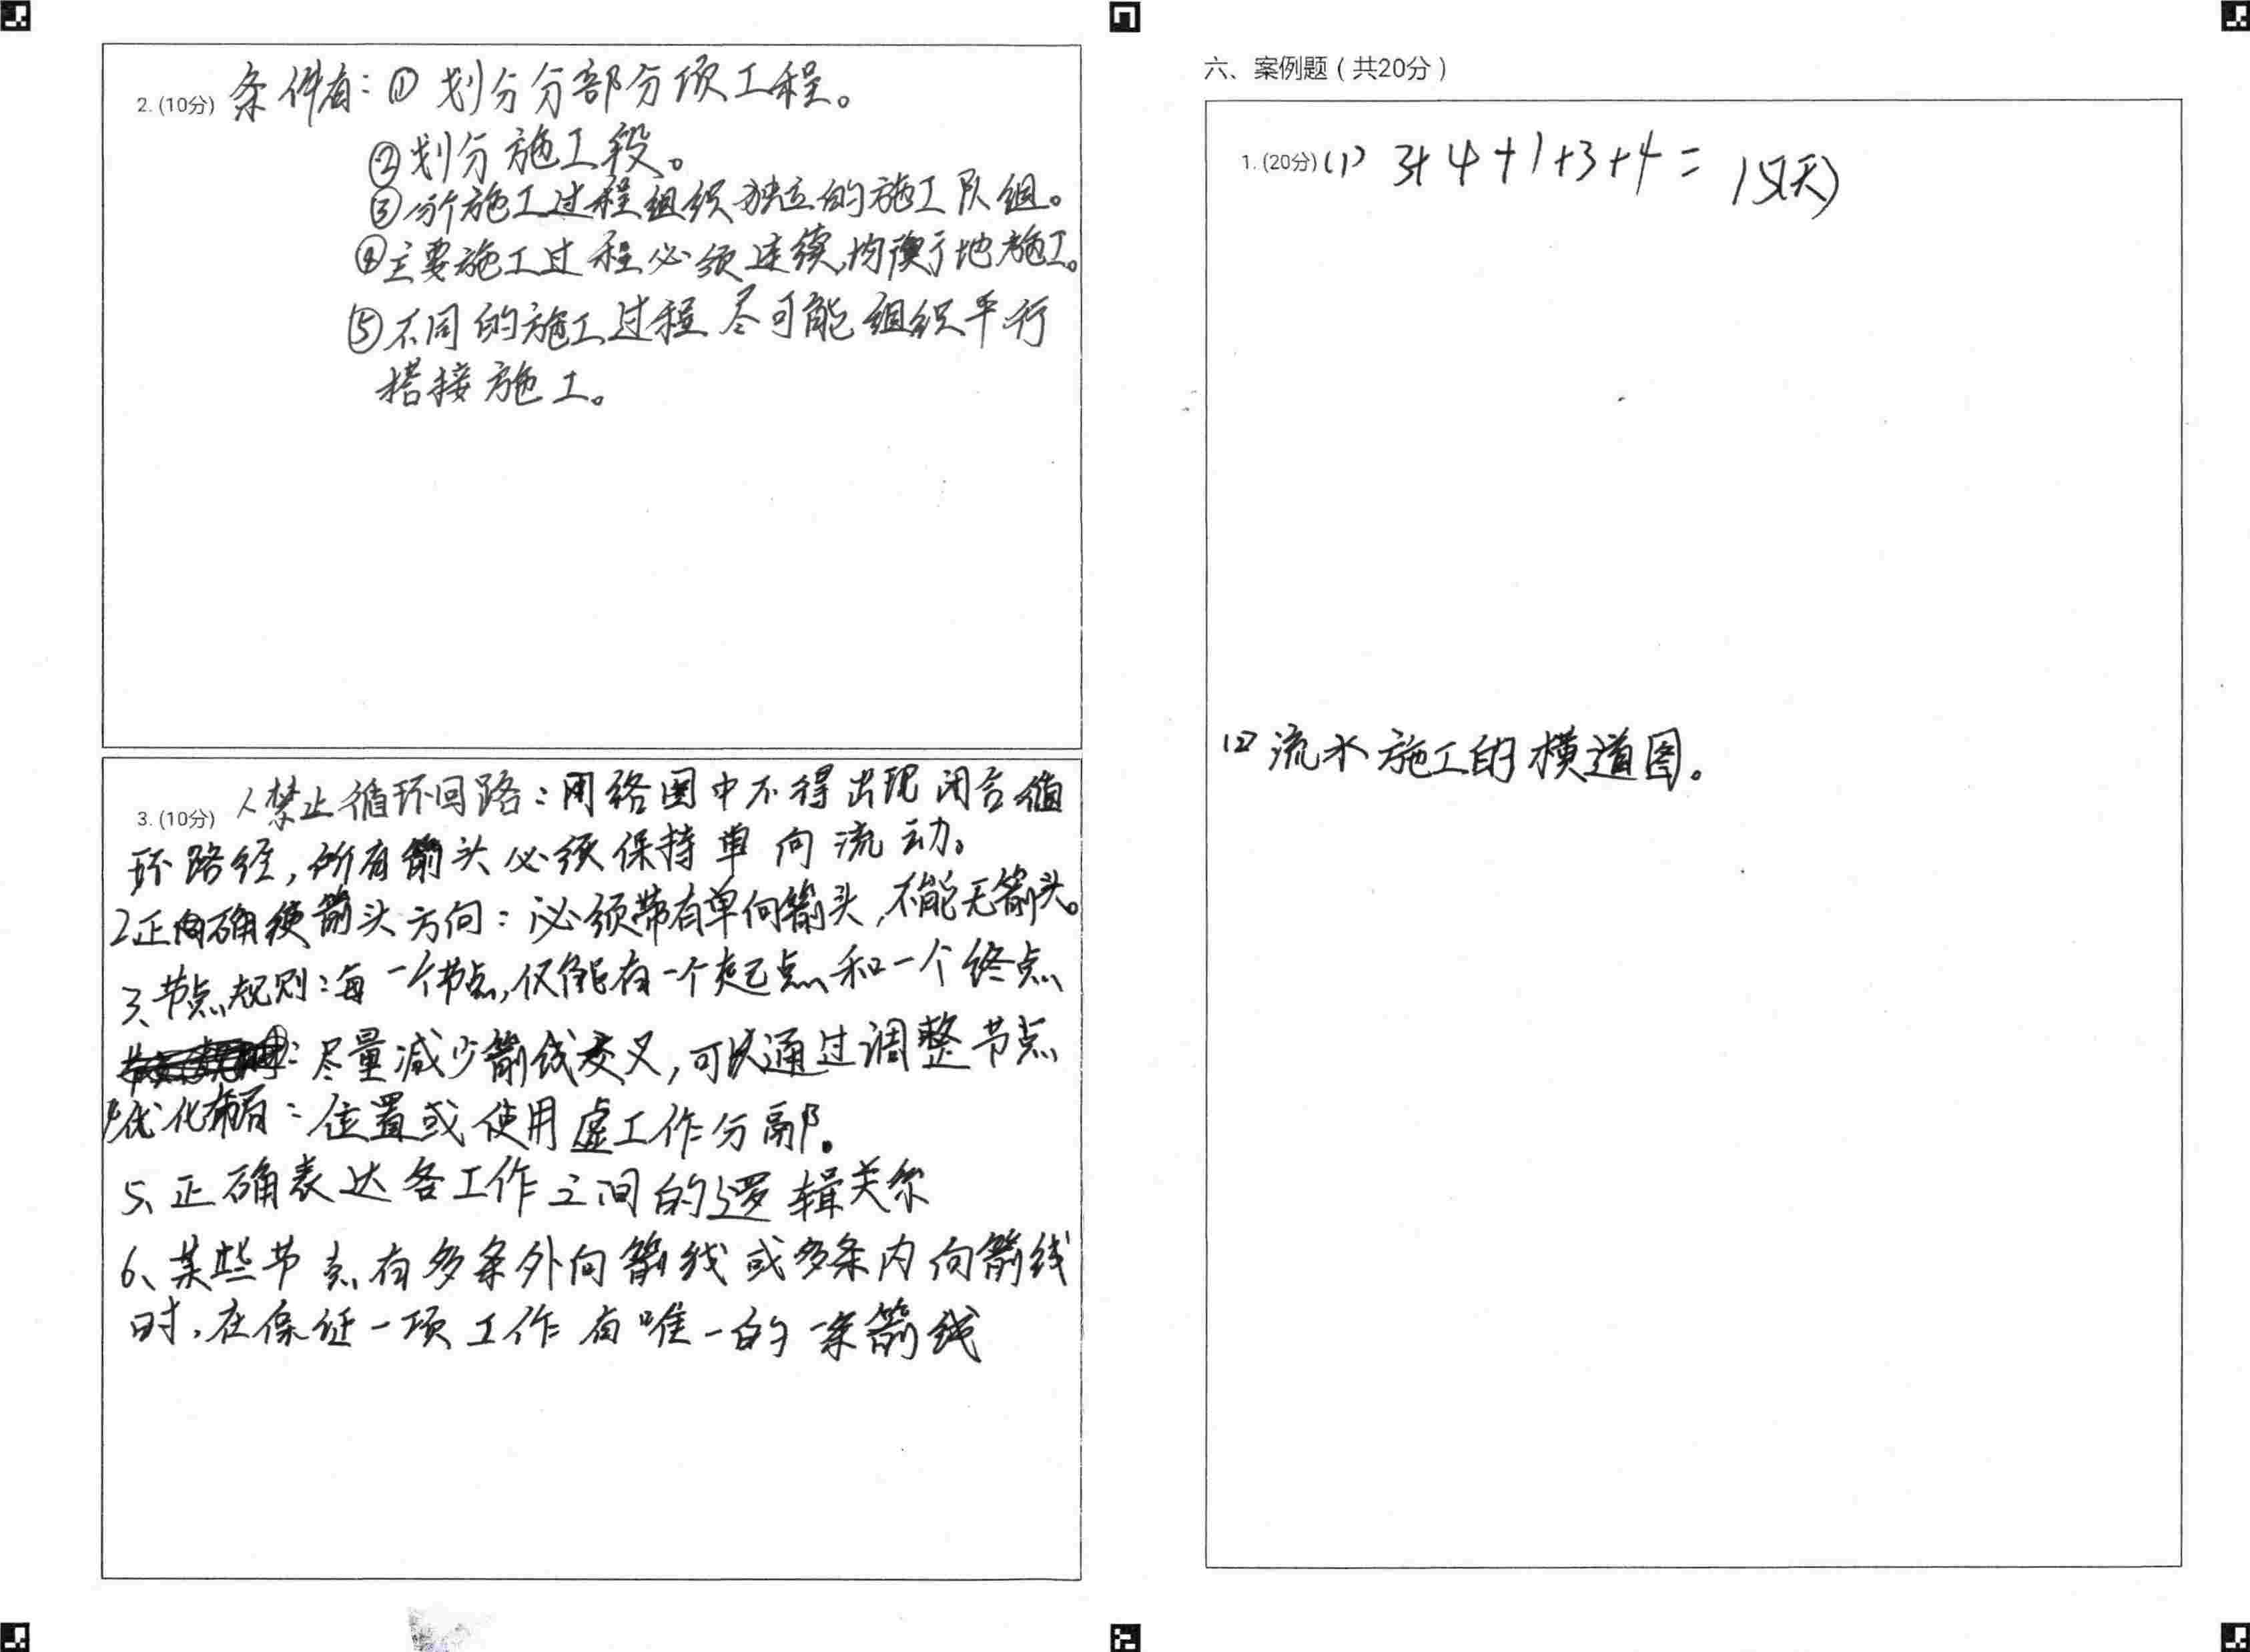 2. (10分) 条件有：① 划分分部分项工程。
②划分施工段。
③每个施工过程组织独立的施工队组。
④主要施工过程必须连续，均衡地施工。
⑤不同的施工过程尽可能组织平行
搭接施工。
3. (10分) 1、禁止循环回路：网络图中不得出现闭合循
环路径，所有箭头必须保持单向流动。
2正确使箭头方向：必须带有单向箭头，不能无箭头。
3、节点规则：每一个节点，仅能有一个起点和一个终点
：尽量减少箭线交叉，可以通过调整节点
4优化布局：位置或使用虚工作分隔。
5、正确表达各工作之间的逻辑关系
6、某些节点有多条外向箭线或多条内向箭线
时，在保证一项工作有唯一的一条箭线
六、案例题（共20分）
1. (20分) (1) 3+4+1+3+4= 15(天)
(2) 流水施工的横道图。